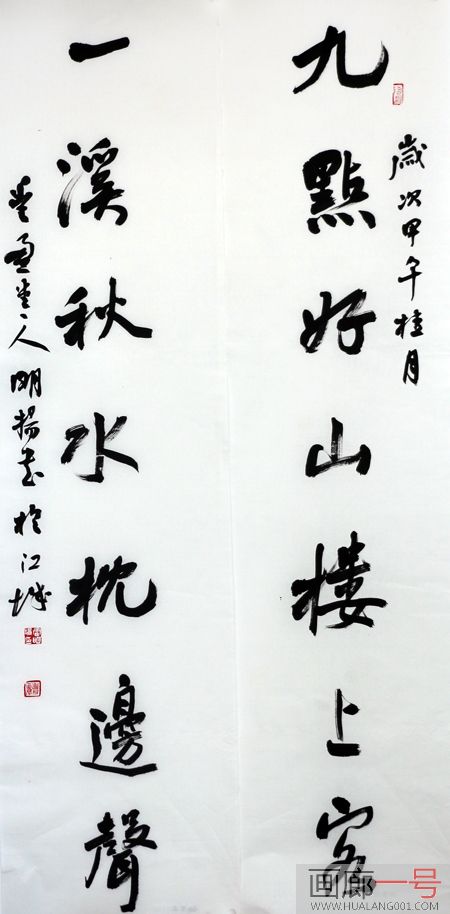 歲次甲午桂月
九點好山樓上客
一溪秋水枕邊聲
人明揚書於江城
画廊一号
WWW.HUALANG001.COM